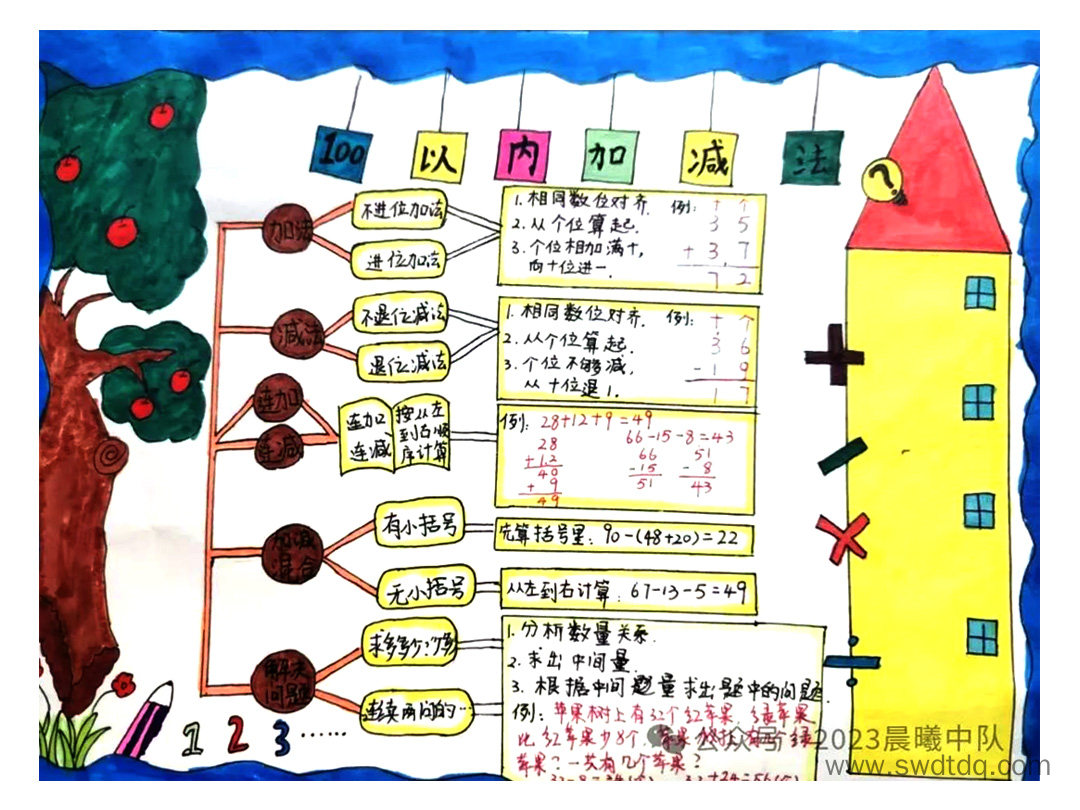 100 以 内 加 减 法
?
加法
不进位加法
进位加法
1. 相同数位对齐.
2. 从个位算起.
3. 个位相加满十,
向十位进一.
例: 十 个
3 5
+ 3 7
7 2
减法
不退位减法
退位减法
1. 相同数位对齐.
2. 从个位算起.
3. 个位不够减,
从十位退1.
例: 十 个
3 6
- 1 9
1 7
连加
连减
连加
连减
按从左
到右顺
序计算
例: 28+12+9=49
28
+12
40
+ 9
49
66-15-8=43
66
-15
51
51
- 8
43
加减
混合
有小括号
先算括号里: 90-(48+20)=22
无小括号
从左到右计算: 67-13-5=49
解决
问题
求多多少?
连续两问的…
1. 分析数量关系.
2. 求出中间量.
3. 根据中间量求出题中的问题.
例: 苹果树上有32个红苹果, 绿苹果
比红苹果少8个.
苹果? 一共有几个苹果?
1 2 3 ……
公众号 · 2023晨曦中队
www.swdtdq.com